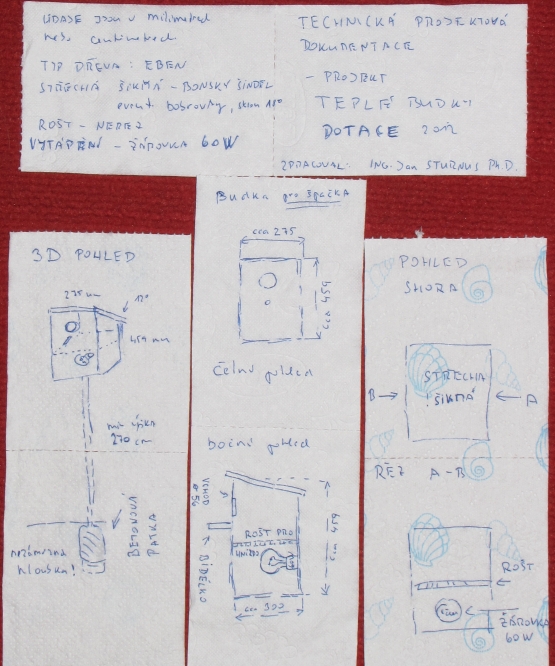 ÚDAJE JSOU V milimetrech
nebo centimetrech
TYP DŘEVA: EBEN
STŘECHA ŠIKMÁ - BONSKÝ ŠINDEL
event. bobrovky, sklon 12°
ROŠT - NEREZ
VYTÁPĚNÍ - ŽÁROVKA 60W
TECHNICKÁ PROJEKTOVÁ
DOKUMENTACE
- PROJEKT
TEPLÉ BUDKY
DOTACE 2012
ZPRACOVAL: ING. Jan STURNUS Ph.D.
3D POHLED
275 mm
12°
459 mm
min výška
270 cm
BETONOVÁ
PATKA
nezámrzná
hloubka!
Budka pro špačka
cca 275
cca 459
Čelní pohled
boční pohled
VCHOD
ø 50
ROŠT PRO
HNÍZDO
BIDÉLKO
cca 459
cca 300
POHLED
SHORA
STŘECHA
ŠIKMÁ
B
A
ŘEZ A-B
ROŠT
ŽÁROVKA
60W